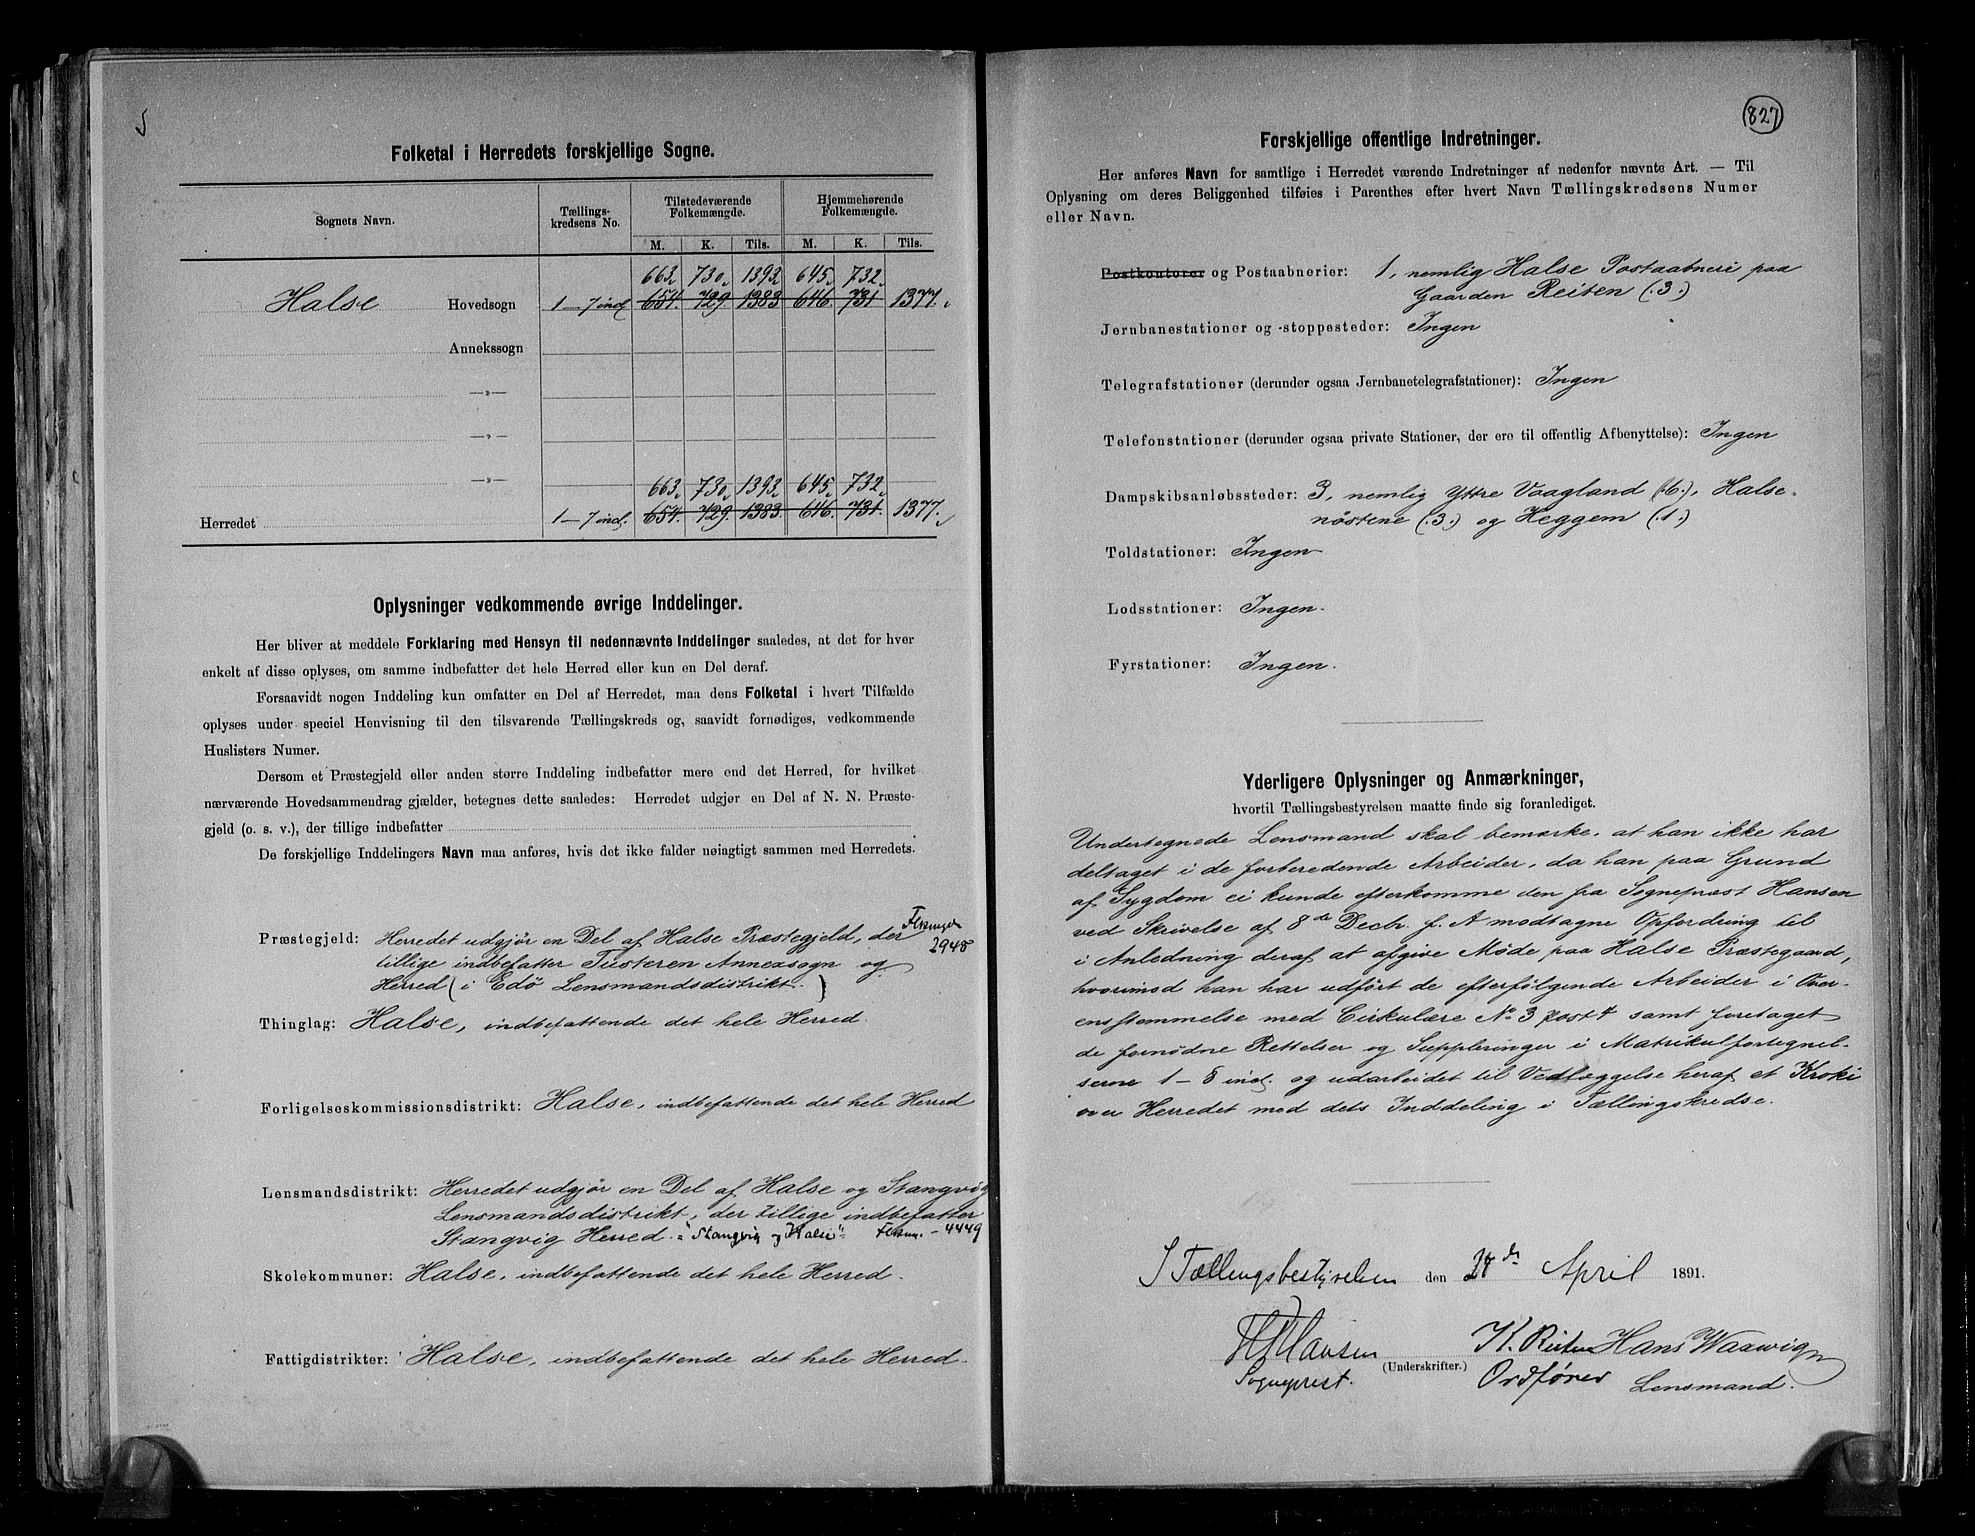 5
Folketal i Herredets forskjellige Sogne.
Sognets Navn.
Tællings-
kredsens No.
Tilstedeværende
Folkemængde.
Hjemmehørende
Folkemængde.
M. K. Tils. M. K. Tils.
663. 730. 1393. 645. 732.
Halse Hovedsogn 1–7 incl. 654. 729. 1383 646. 731 1377.
Annekssogn
—»—
—»—
—»—
663. 730. 1393. 645. 732.
Herredet 1–7 incl. 654. 729. 1383. 646. 731. 1377.
Oplysninger vedkommende øvrige Inddelinger.
Her bliver at meddele Forklaring med Hensyn til nedennævnte Inddelinger saaledes, at det for hver
enkelt af disse oplyses, om samme indbefatter det hele Herred eller kun en Del deraf.
Forsaavidt nogen Inddeling kun omfatter en Del af Herredet, maa dens Folketal i hvert Tilfælde
oplyses under speciel Henvisning til den tilsvarende Tællingskreds og, saavidt fornødiges, vedkommende
Huslisters Numer.
Dersom et Præstegjeld eller anden større Inddeling indbefatter mere end det Herred, for hvilket
nærværende Hovedsammendrag gjælder, betegnes dette saaledes: Herredet udgjør en Del af N. N. Præste-
gjeld (o. s. v.), der tillige indbefatter
De forskjellige Inddelingers Navn maa anføres, hvis det ikke falder nøiagtigt sammen med Herredets.
Præstegjeld: Herredet udgjør en Del af Halse Præstegjeld, der
2948
tillige indbefatter Tusteren Annexsogn og
Herred (i Edö Lensmandsdistrikt.)
Thinglag: Halse, indbefattende det hele Herred.
Forligelseskommissionsdistrikt: Halse, indbefattende det hele Herred
Lensmandsdistrikt: Herredet udgjør en Del af Halse og Stangvig
Lensmandsdistrikt, der tillige indbefatter
Stangvig Herred. "Stangvig og Halse" - 4449
Skolekommuner: Halse, indbefattende det hele Herred.
Fattigdistrikter: Halse, indbefattende det hele Herred.
827
Forskjellige offentlige Indretninger.
Her anføres Navn for samtlige i Herredet værende Indretninger af nedenfor nævnte Art. — Til
Oplysning om deres Beliggenhed tilføies i Parenthes efter hvert Navn Tællingskredsens Numer
eller Navn.
Postkontorer og Postaabnerier: 1, nemlig Halse Postaabneri paa
Gaarden Reiten (.3.)
Jernbanestationer og -stoppesteder: Ingen
Telegrafstationer (derunder ogsaa Jernbanetelegrafstationer): Ingen
Telefonstationer (derunder ogsaa private Stationer, der ere til offentlig Afbenyttelse): Ingen
Dampskibsanløbssteder: 3, nemlig Yttre Vaagland (.6.), Halse-
nöstene (.3.) og Heggem (.1.)
Toldstationer: Ingen
Lodsstationer: Ingen.
Fyrstationer: Ingen.
Yderligere Oplysninger og Anmærkninger,
hvortil Tællingsbestyrelsen maatte finde sig foranlediget.
Undertegnede Lensmand skal bemærke, at han ikke har
deltaget i de forberedende Arbeider, da han paa Grund
af Sygdom ei kunde efterkomme den fra Sognepræst Hansen
ved Skrivelse af 8de Decbr. f. A modtagne Opfordring til
i Anledning deraf at afgive Møde paa Halse Præstegaard,
hvorimod han har udført de efterfölgende Arbeider i Over-
ensstemmelse med Cirkulære No 3 post 4 samt foretaget
de fornødne Rettelser og Suppleringer i Matrikulfortegnel-
serne 1–8 incl. og udarbeidet til Vedlæggelse heraf et Kroki
over Herredet med dets Inddeling i Tællingskredse.
I Tællingsbestyrelsen den 28de April 1891.
Hansen K. Reiten Hans Waavig
(Underskrifter.)
Sogneprest. Ordfører Lensmand.